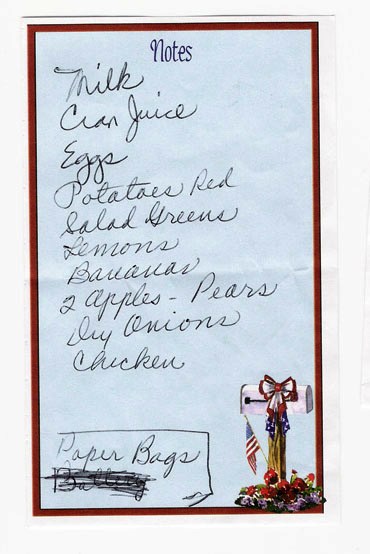 Notes
Milk
Cran Juice
Eggs
Potatoes Red
Salad Greens
Lemons
Bananas
2 Apples - Pears
Dry Onions
Chicken
Paper Bags
Battery